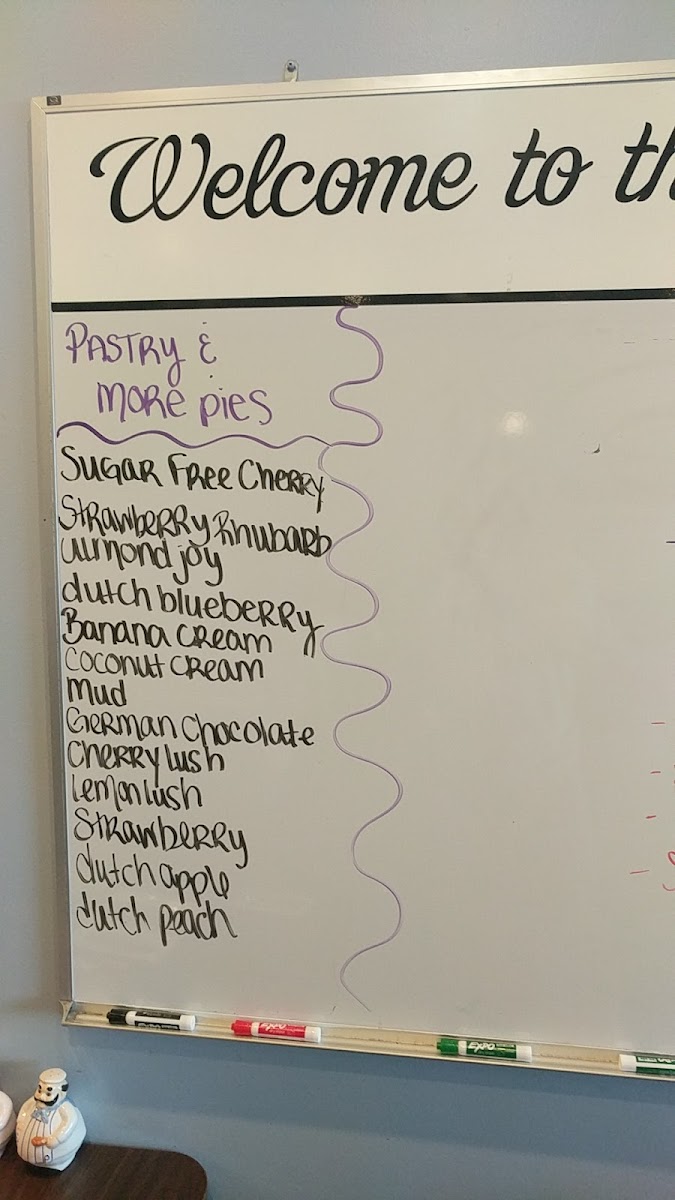 Welcome to th
PASTRY &
MORE pies
SUGAR FREE CHERRY
STRAWBERRY Rhubarb
almond joy
dutch blueberry
Banana cream
coconut cream
mud
German Chocolate
Cherry lush
lemon lush
Strawberry
dutch apple
dutch peach
EXPO
EXPO